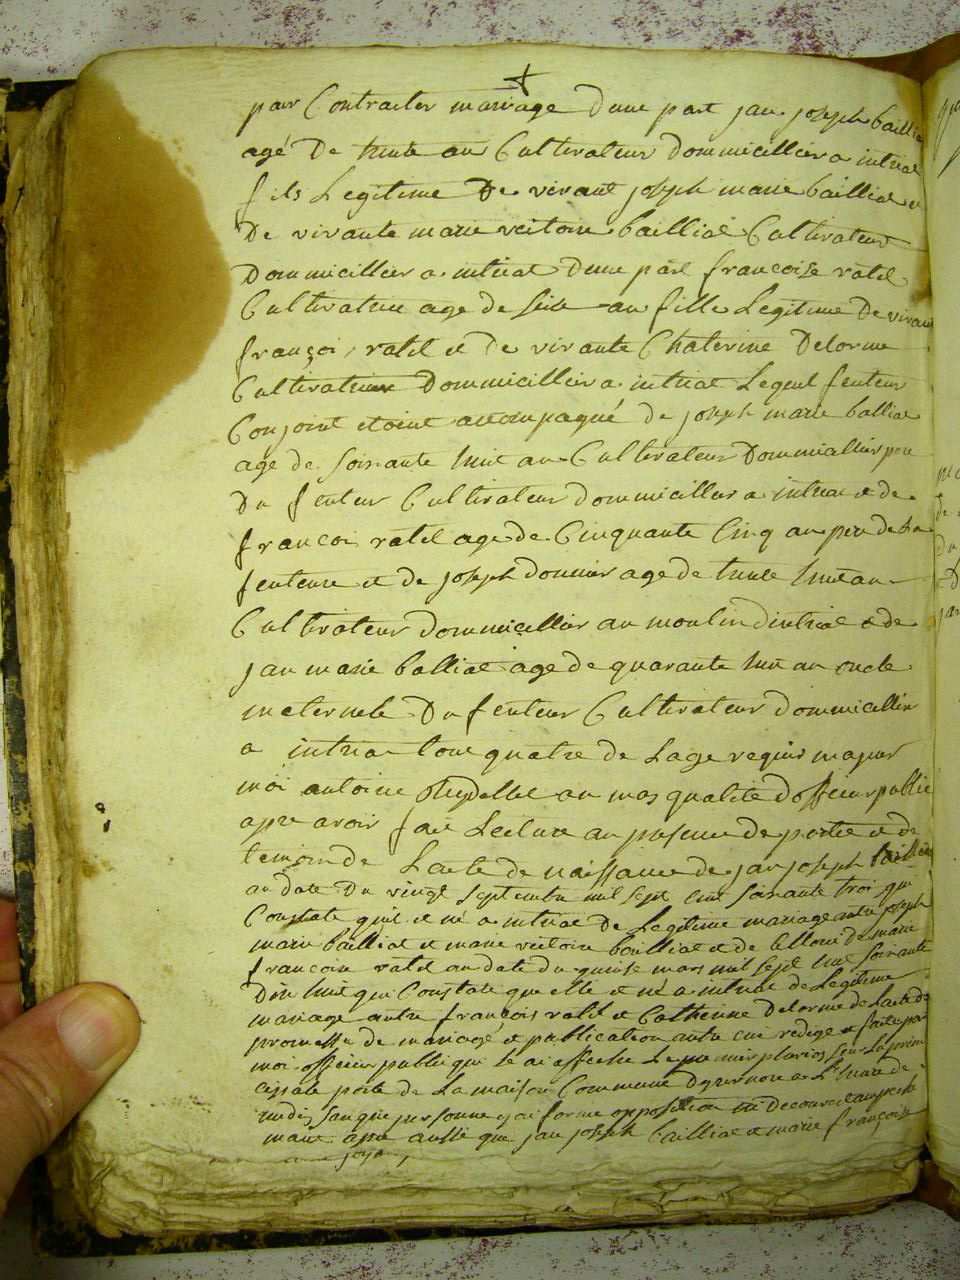 par Contracter mariage dune part jan joseph baillia
agé De trente an Cultivateur dommicillier a intriat
fils Legitime De vivant joseph marie bailliat et
De vivante marie victoire bailliat Cultivateur
Dommicillier a intriat dune part francoise ratel
Cultivateur age de seize an fille Legitime De vivant
françoi ratel et de vivante Chaterine Delorme
Cultivateur Dommicillier a intriat Lequel
Conjoint etoint accompagné de joseph marie balliat
age de soixante huit an Cultivateur Dommicillier pere
Du Cultivateur dommicillier a intriat et de
francoi ratel age de Cinquante Cinq an pere de la
et de joseph donnier age de trente huit an
Cultivateur dommicillier au moulin dintriat et de
jan marie balliat age de quarante huit an oncle
maternele Du Cultivateur dommicillier
a intriat tous quatre de Lage requis majeur
moi antoine an mas qualité dofficier public
apre avoir fait Lecture an presence de partie et de
temoin de Lacte de naissance de jan joseph baillia
an date Du vingt septembre mil sept cent soixante troi qui
Constate quil et né a intriat de Legitime mariage antre joseph
marie bailliat et marie victoire bailliat et de Celloui de marie
francoise ratel an date du quinse mars mil sept cent soixante
Dix huit qui Constate que elle et né a intriat de Legitime
mariage antre françois ratel et Catherine Delorme de Lacte de
promesse de mariage et publication antre eux redigé et faite par
moi officier public qui a affiché Le sur La prin
cipale porte de La maison Commune a Lheure de
midi san que personne y ai formé opposition
marie apre aussi que jan joseph bailliat et marie françoise